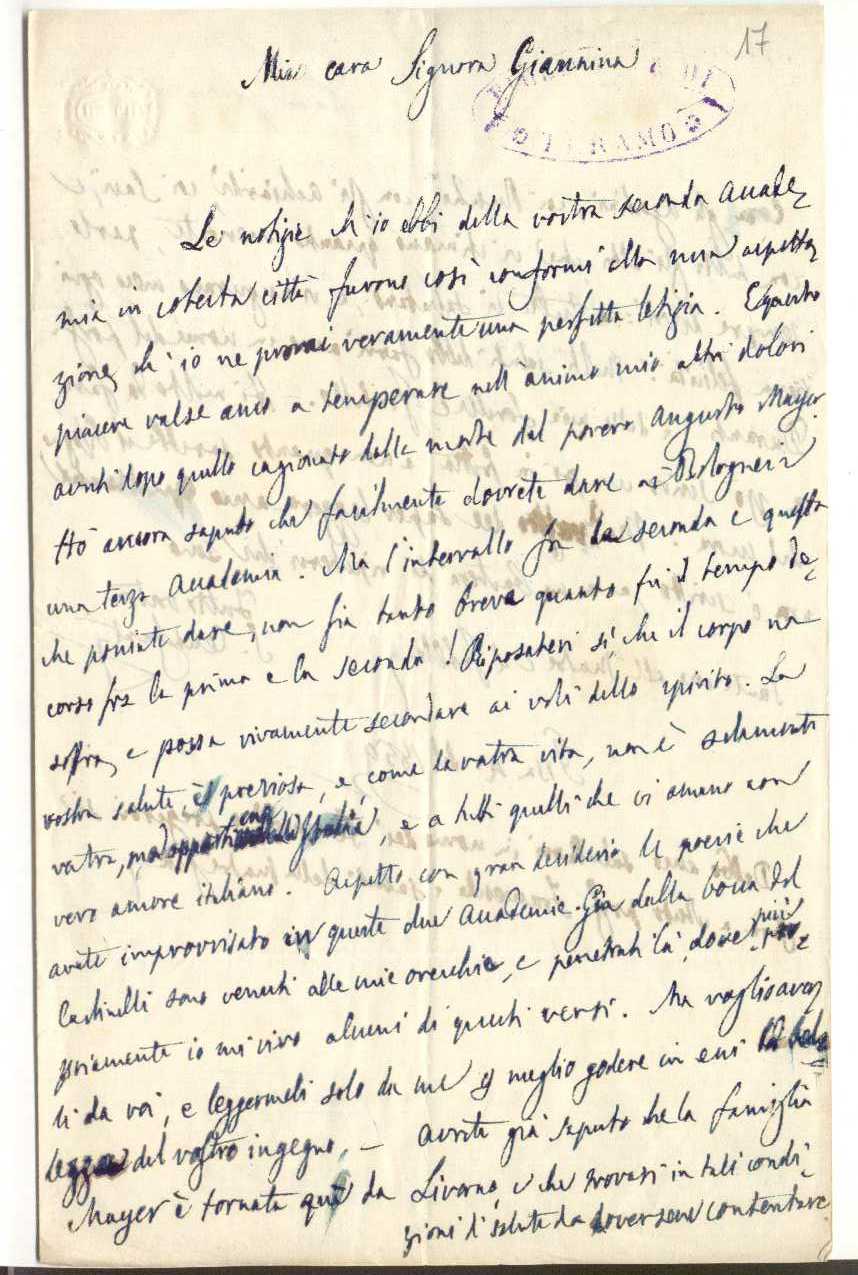 17
Mia cara Signora Giannina
Le notizie ch'io ebbi della vostra seconda Accade-
mia in cotesta città furono così conformi alla mia aspetta-
zione, ch'io ne provai veramente una perfetta letizia. E questo
piacere valse anco a temperare nell'animo mio altri dolori
avuti dopo quello cagionato dalla morte del povero Augusto Mayer.
Hò ancora saputo che facilmente dovrete dare ai Bolognesi
una terza Accademia. Ma l'intervallo fra la seconda e questa
che poniate dare, non sia tanto breve quanto fu il tempo de-
corso fra la prima e la seconda! Riposatevi sì, che il corpo non
soffra, e possa vivamente secondare ai voli dello spirito. La
vostra salute è preziosa, e, come la vostra vita, non è solamente
vostra, ma appartiene all'Italia, e a tutti quelli che vi amano con
vero amore italiano. Aspetto con gran desiderio le poesie che
avete improvvisato in queste due Accademie. Già dalla bocca del
Castinelli sono venuti alle mie orecchie, e penetrati là, dove più pro-
priamente io mi vivo alcuni di questi versi. Ma voglio aver-
li da voi, e leggermeli solo da me e meglio godere in essi la bel-
lezza del vostro ingegno. — Avrete già saputo che la famiglia
Mayer è tornata quì da Livorno, e che trovasi in tali condi-
zioni di salute da doversene contentare